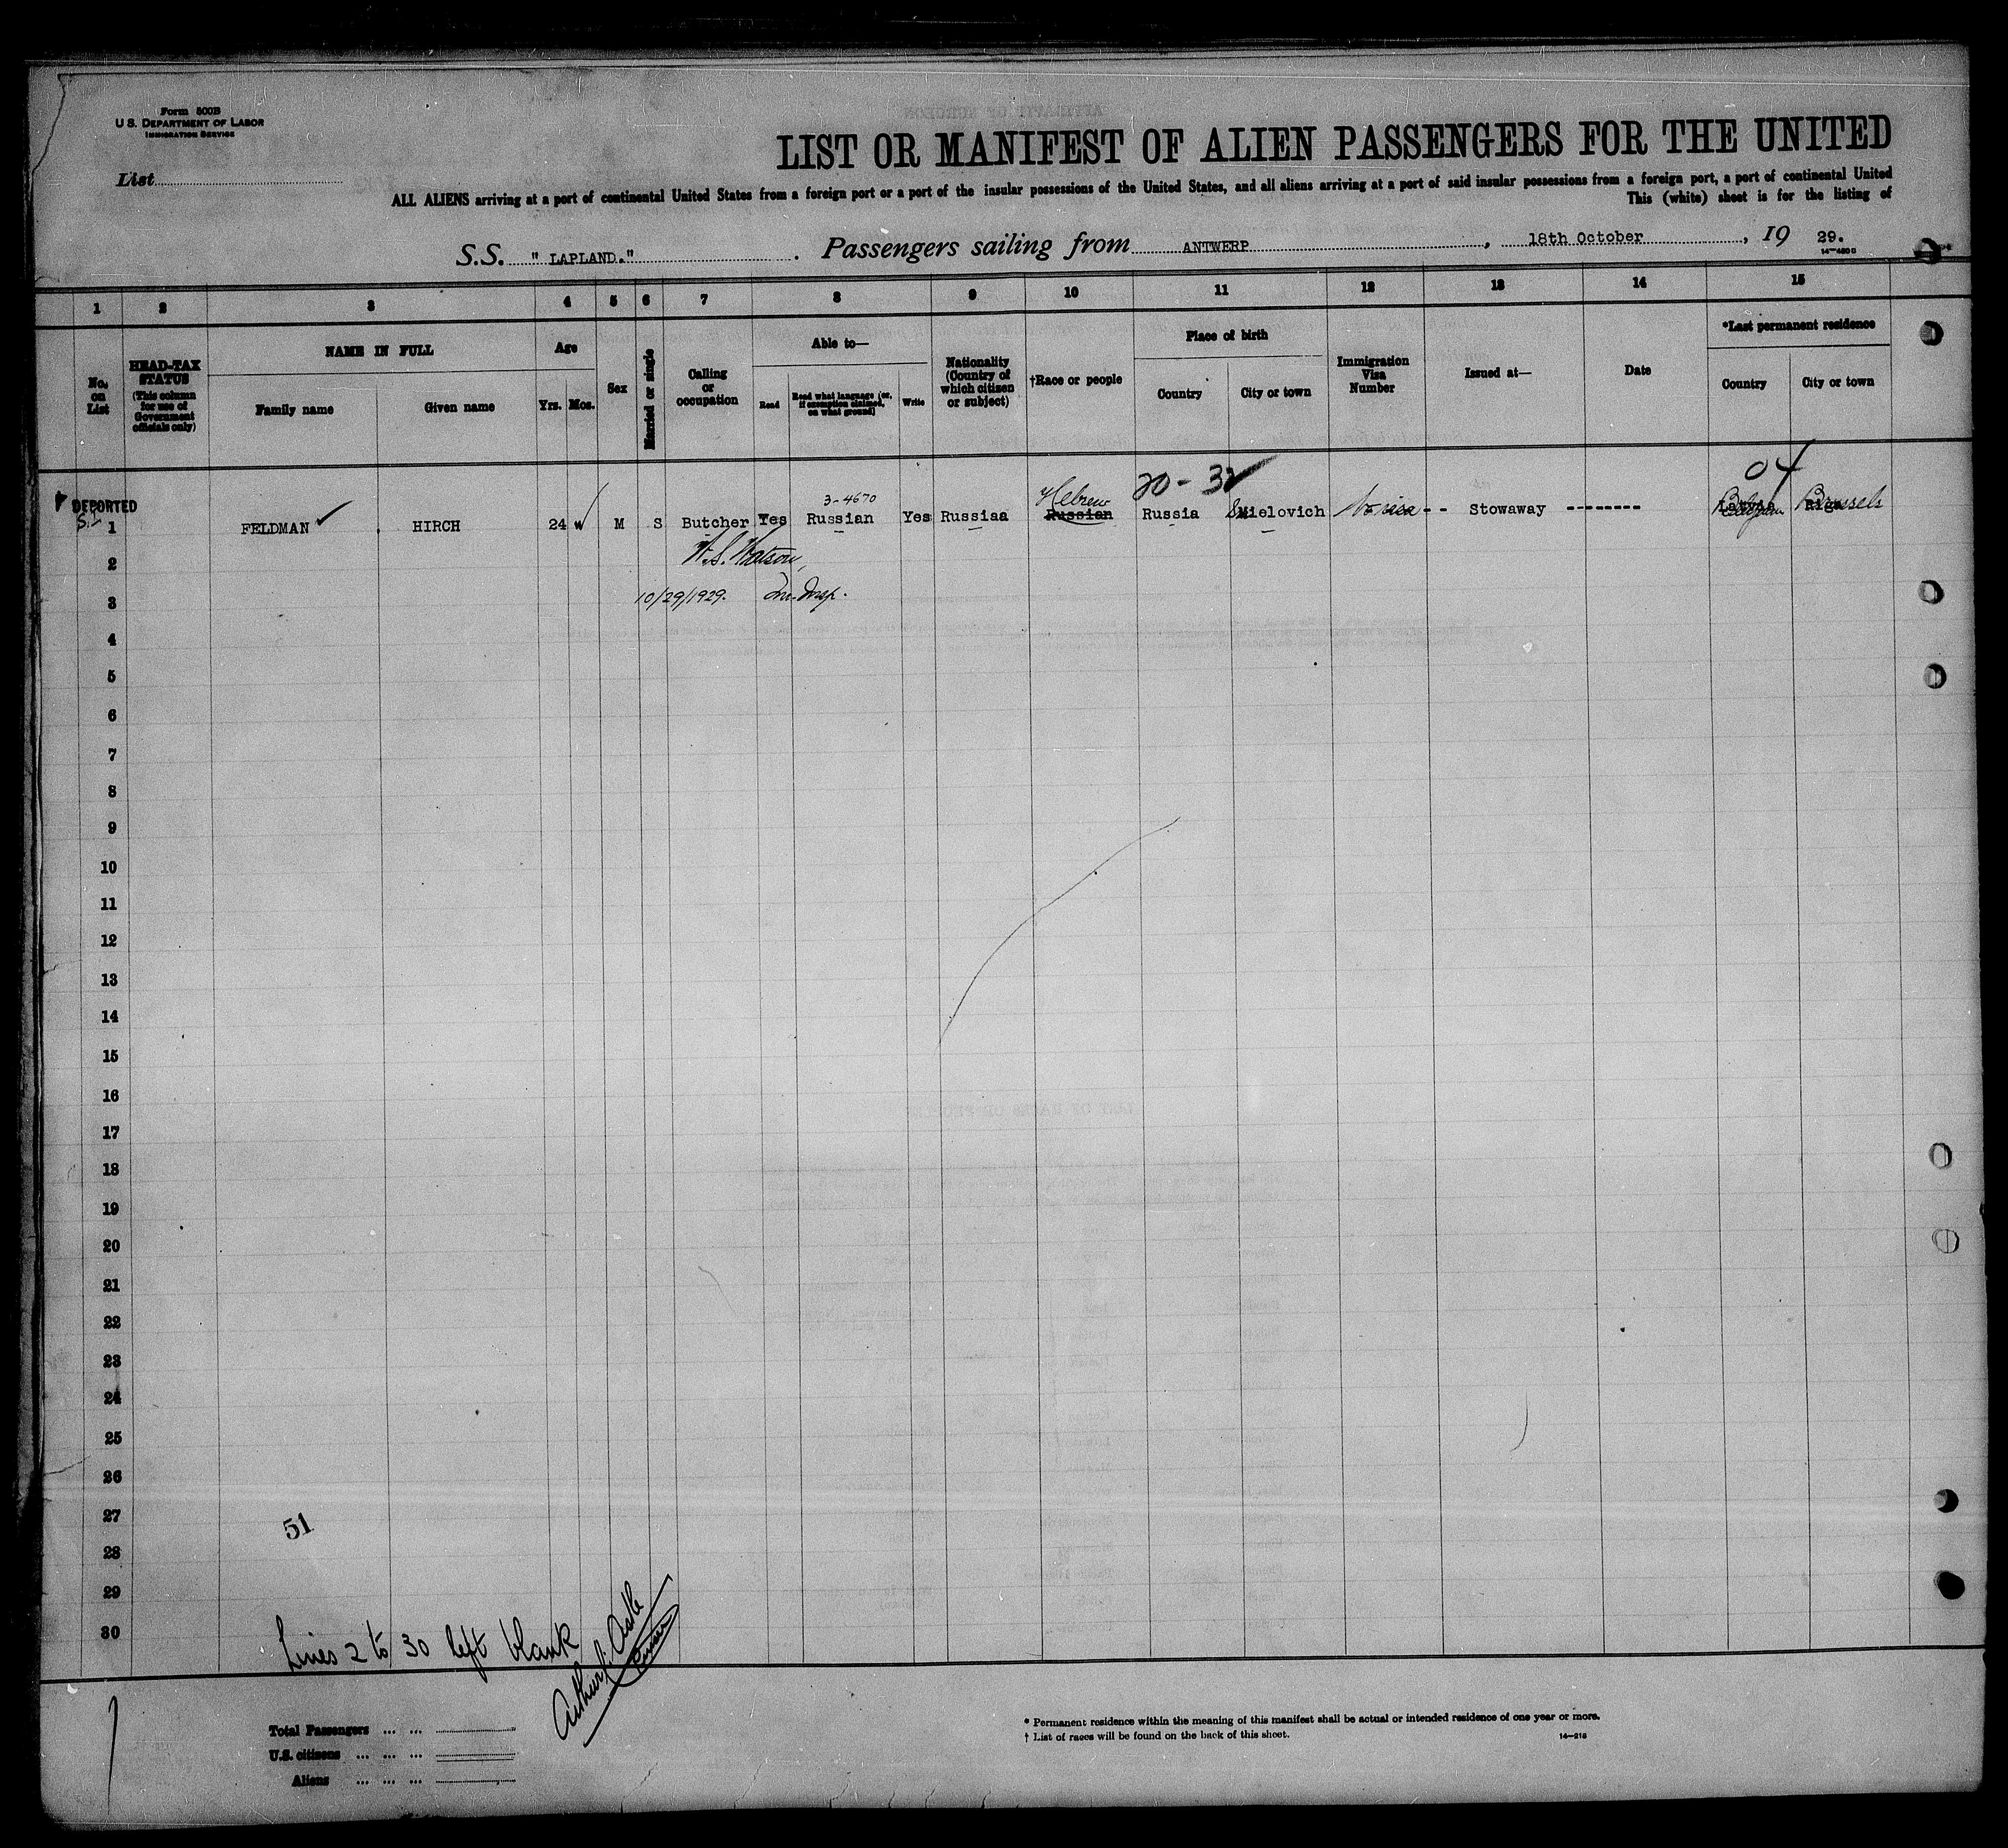 Form 500B
U.S. DEPARTMENT OF LABOR
IMMIGRATION SERVICE
List
LIST OR MANIFEST OF ALIEN PASSENGERS FOR THE UNITED
ALL ALIENS arriving at a port of continental United States from a foreign port or a port of the insular possessions of the United States, and all aliens arriving at a port of said insular possessions from a foreign port, a port of continental United
This (white) sheet is for the listing of
S.S. " LAPLAND." . Passengers sailing from ANTWERP , 18th October , 19 29.
1 2 3 4 5 6 7 8 9 10 11 12 13 14 15
No. on List
HEAD-TAX STATUS (This column for use of Government officials only)
NAME IN FULL
Family name
Given name
Age
Yrs. Mos.
Sex
Married or single
Calling or occupation
Able to—
Read
Read what language (or, if exemption claimed, on what ground)
Write
Nationality (Country of which citizen or subject)
†Race or people
Place of birth
Country
City or town
Immigration Visa Number
Issued at—
Date
*Last permanent residence
Country
City or town
DEPORTED
S.I.
3-4670
Hebrew
20-32
04
1 FELDMAN HIRCH 24 M S Butcher Yes Russian Yes Russiaa Russian Russia Mielovich No visa -- Stowaway -------- Latvia Belgium Riga Brussels
2 W.S. Watson,
3 10/29/1929. Im. Insp.
4
5
6
7
8
9
10
11
12
13
14
15
16
17
18
19
20
21
22
23
24
25
26
27
51
28
29
30
Lines 2 to 30 left blank
Purser
Total Passengers ... ...
U.S. citizens ... ... ...
Aliens ... ... ...
* Permanent residence within the meaning of this manifest shall be actual or intended residence of one year or more.
† List of races will be found on the back of this sheet.
14—218